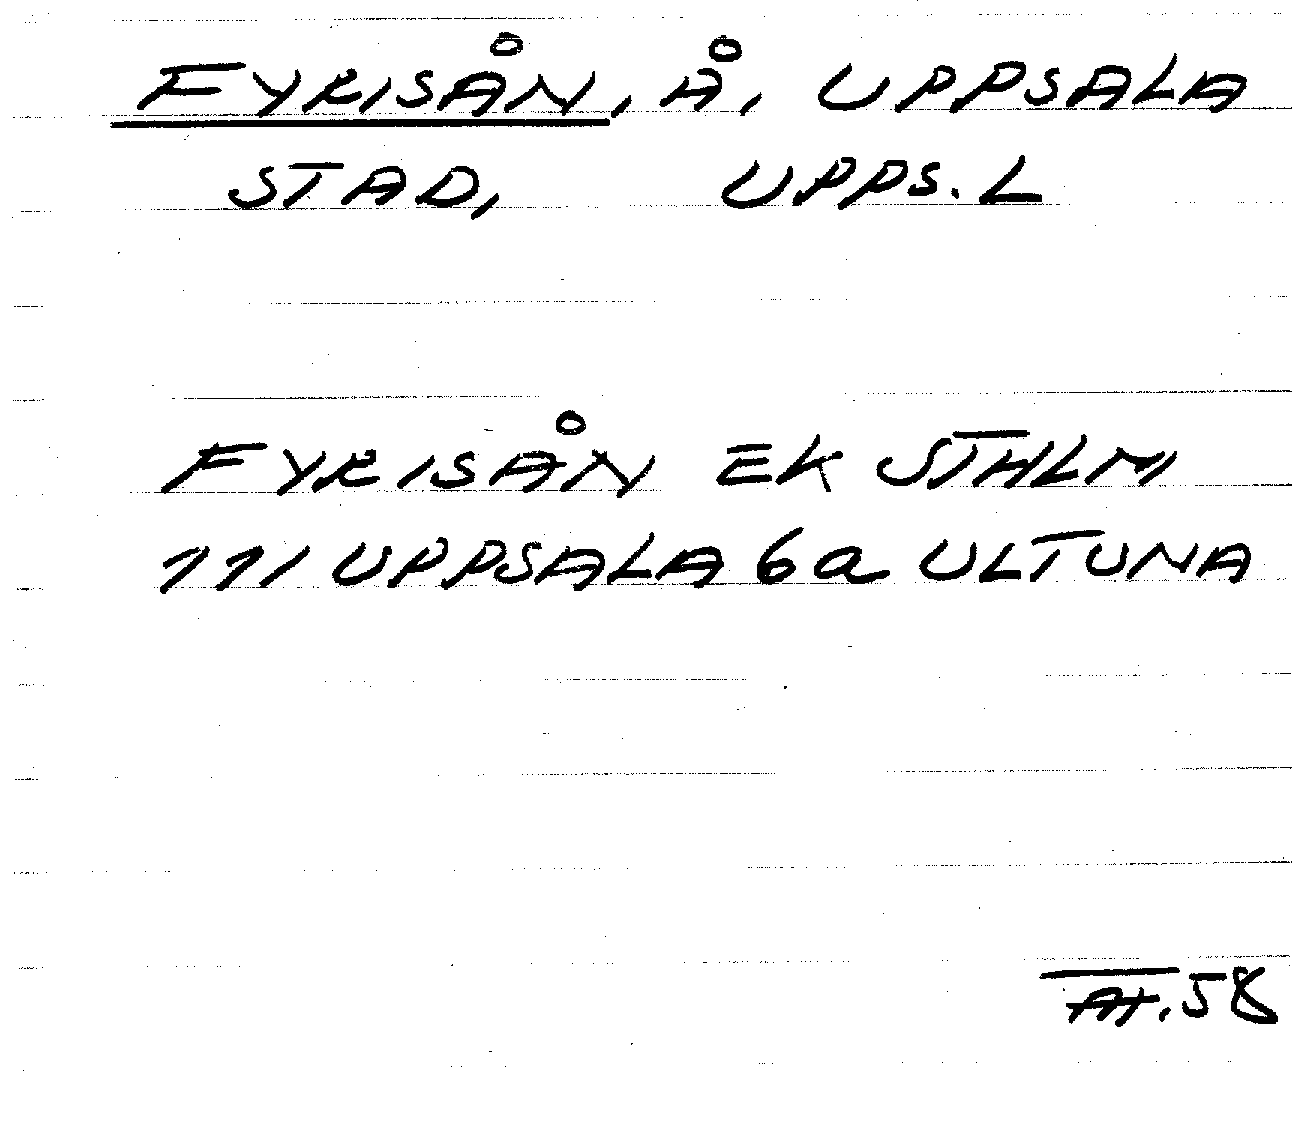 FYRISÅN, Å, UPPSALA
STAD, UPPS. L
FYRISÅN EK STHLM
111 UPPSALA 6a ULTUNA
58